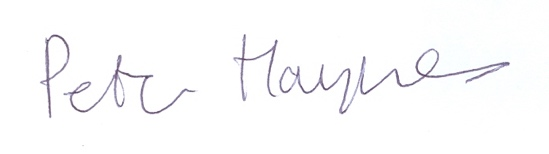 Peter Haynes